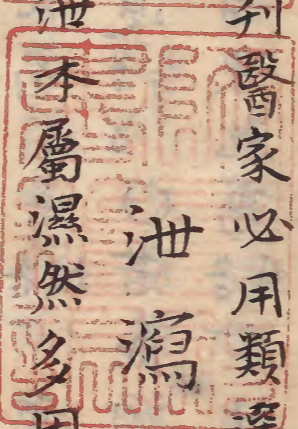 刊醫家必用類選
泄瀉
泄本屬濕然多因